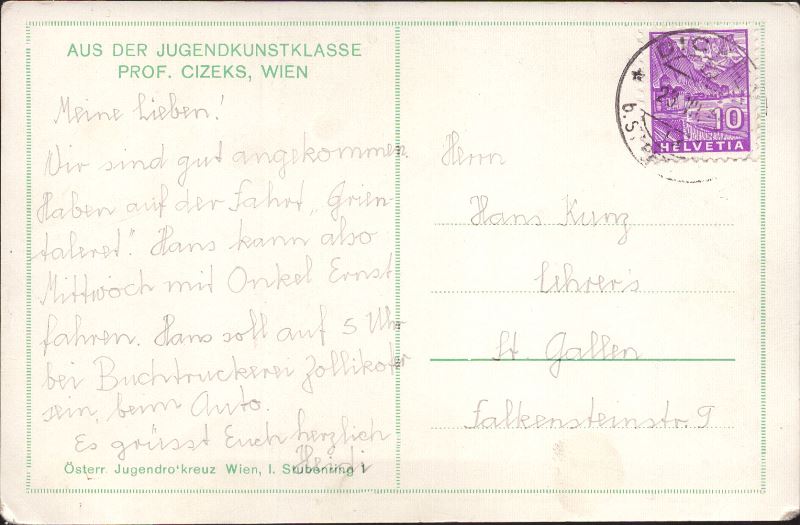 AUS DER JUGENDKUNSTKLASSE
PROF. CIZEKS, WIEN
Meine Lieben!
Wir sind gut angekommen.
Haben auf der Fahrt „Grien-
taleret". Hans kann also
Mittwoch mit Onkel Ernst
fahren. Hans soll auf 5 Uhr
bei Buchtruckerei Zollikofer
sein, beim Auto.
Es grüsst Euch herzlich
Heidi
Österr. Jugendrotkreuz Wien, I. Stubenring 1
10
HELVETIA
Herrn
Hans Kunz
Lehrer's
St. Gallen
Falkensteinstr. 9